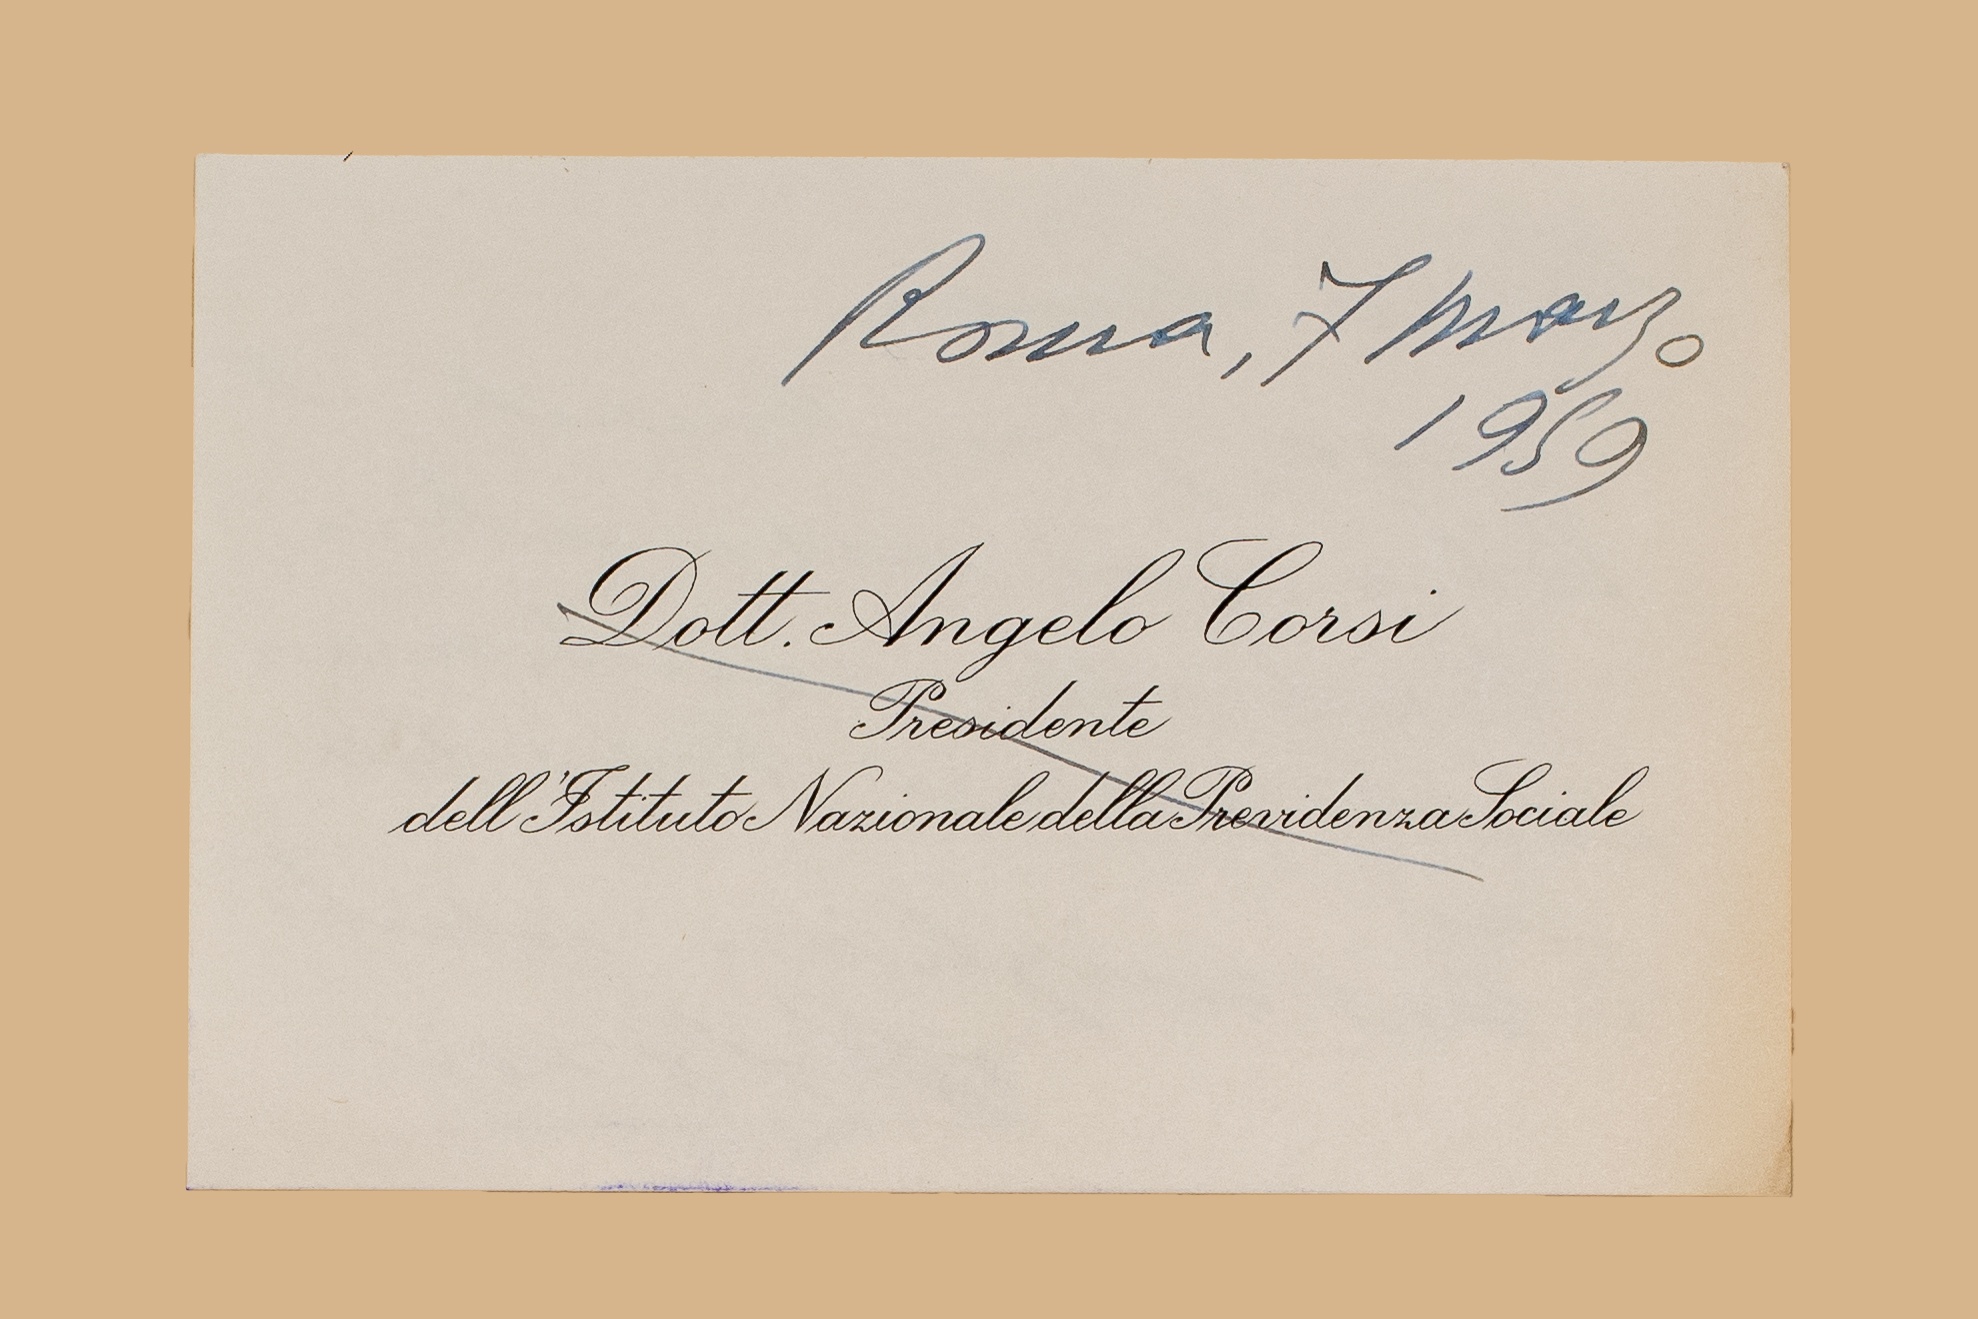 Roma, 7 marzo
1959
Dott. Angelo Corsi
Presidente
dell'Istituto Nazionale della Previdenza Sociale